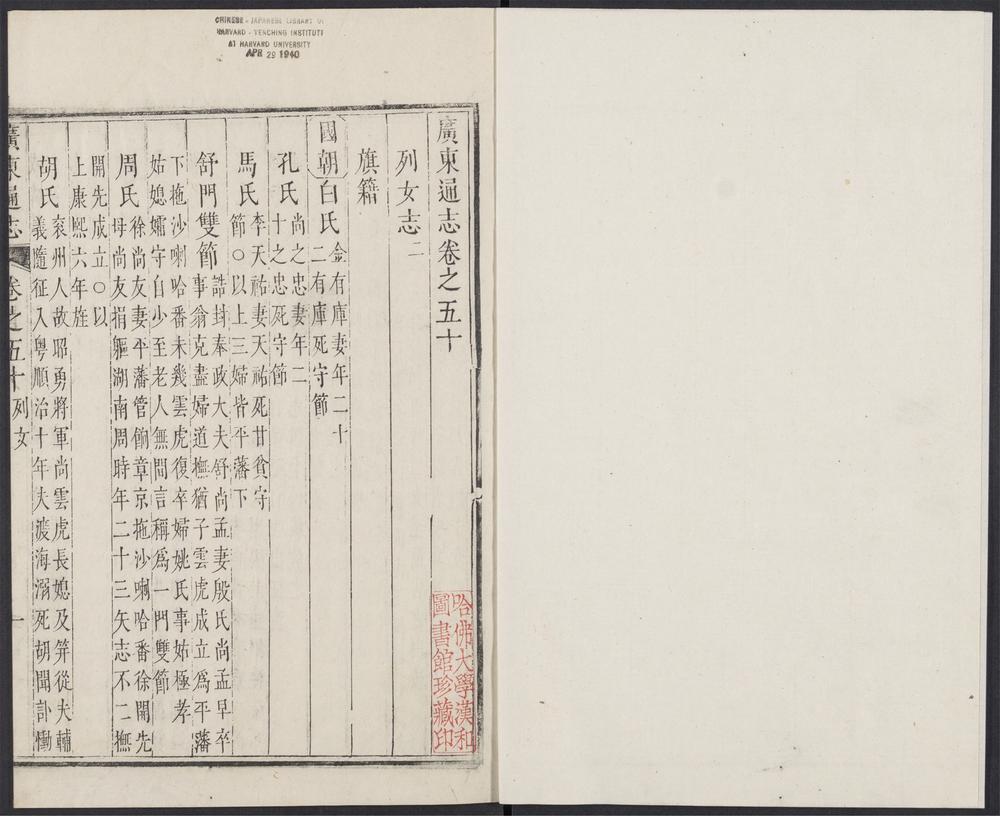 CHINESE - JAPANESE LIBRARY OF
HARVARD - YENCHING INSTITUTE
AT HARVARD UNIVERSITY
APR 29 1940
廣東通志卷之五十
列女志二
旗籍
國朝白氏金有庫妻年二十
二有庫死守節
孔氏尚之忠妻年二
十之忠死守節
馬氏李天祐妻天祐死甘貧守
節○以上三婦皆平藩下
舒門雙節誥封奉政大夫舒尚孟妻殷氏尚孟早卒
事翁克盡婦道撫猶子雲虎成立爲平藩
下拖沙喇哈番未幾雲虎復卒婦姚氏事姑極孝
姑媳孀守自少至老人無間言稱爲一門雙節
周氏徐尚友妻平藩管餉章京拖沙喇哈番徐開先
母尚友捐軀湖南周時年二十三矢志不二撫
開先成立○以
上康熙六年旌
胡氏兗州人故昭勇將軍尚雲虎長媳及笄從夫輔
義隨征入粵順治十年夫渡海溺死胡聞訃慟
廣東通志
卷之五十 列女
一
哈佛大學漢和
圖書館珍藏印